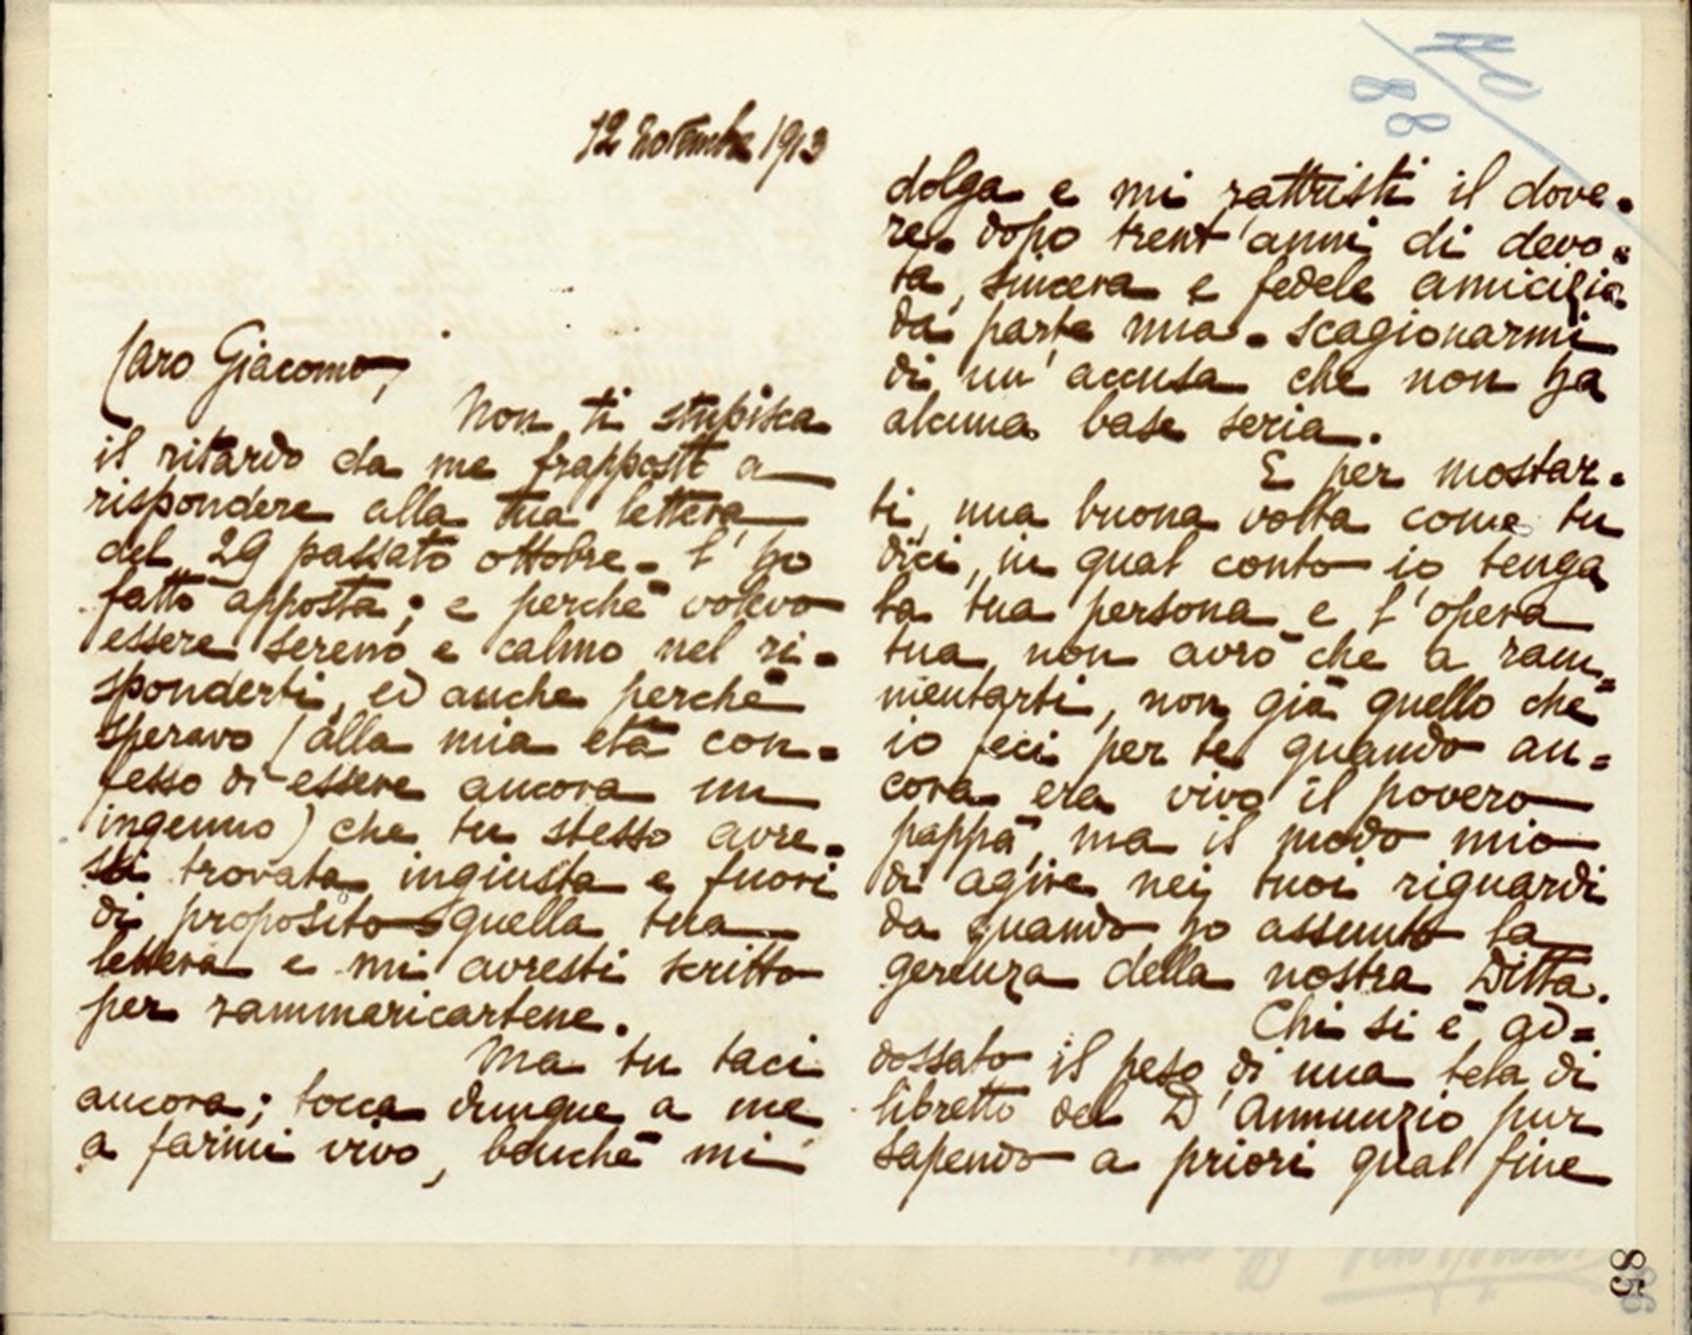 12 novembre 1913
Caro Giacomo,
Non ti stupisca
il ritardo da me frapposto a
rispondere alla tua lettera
del 29 passato ottobre. L'ho
fatto apposta; e perchè volevo
essere sereno e calmo nel ri=
sponderti, ed anche perchè
speravo (alla mia età con=
fesso di essere ancora un
ingenuo) che tu stesso avre=
sti trovata ingiusta e fuori
di proposito quella tua
lettera e mi avresti scritto
per rammaricartene.
Ma tu taci
ancora; tocca dunque a me
a farmi vivo, benchè mi
No
88
dolga e mi rattristi il dove=
re, dopo trent'anni di devo=
ta, sincera e fedele amicizia
da parte mia - scagionarmi
di un'accusa che non ha
alcuna base seria.
E per mostar=
ti, una buona volta come tu
dici, in qual conto io tenga
la tua persona e l'opera
tua, non avrò che a ram=
mentarti, non già quello che
io feci per te quando an=
cora era vivo il povero
pappà, ma il modo mio
di agire nei tuoi riguardi
da quando ho assunto la
gerenza della nostra Ditta.
Chi si è ad=
dossato il peso di una tela di
libretto del D'Annunzio pur
sapendo a priori qual fine
85
86